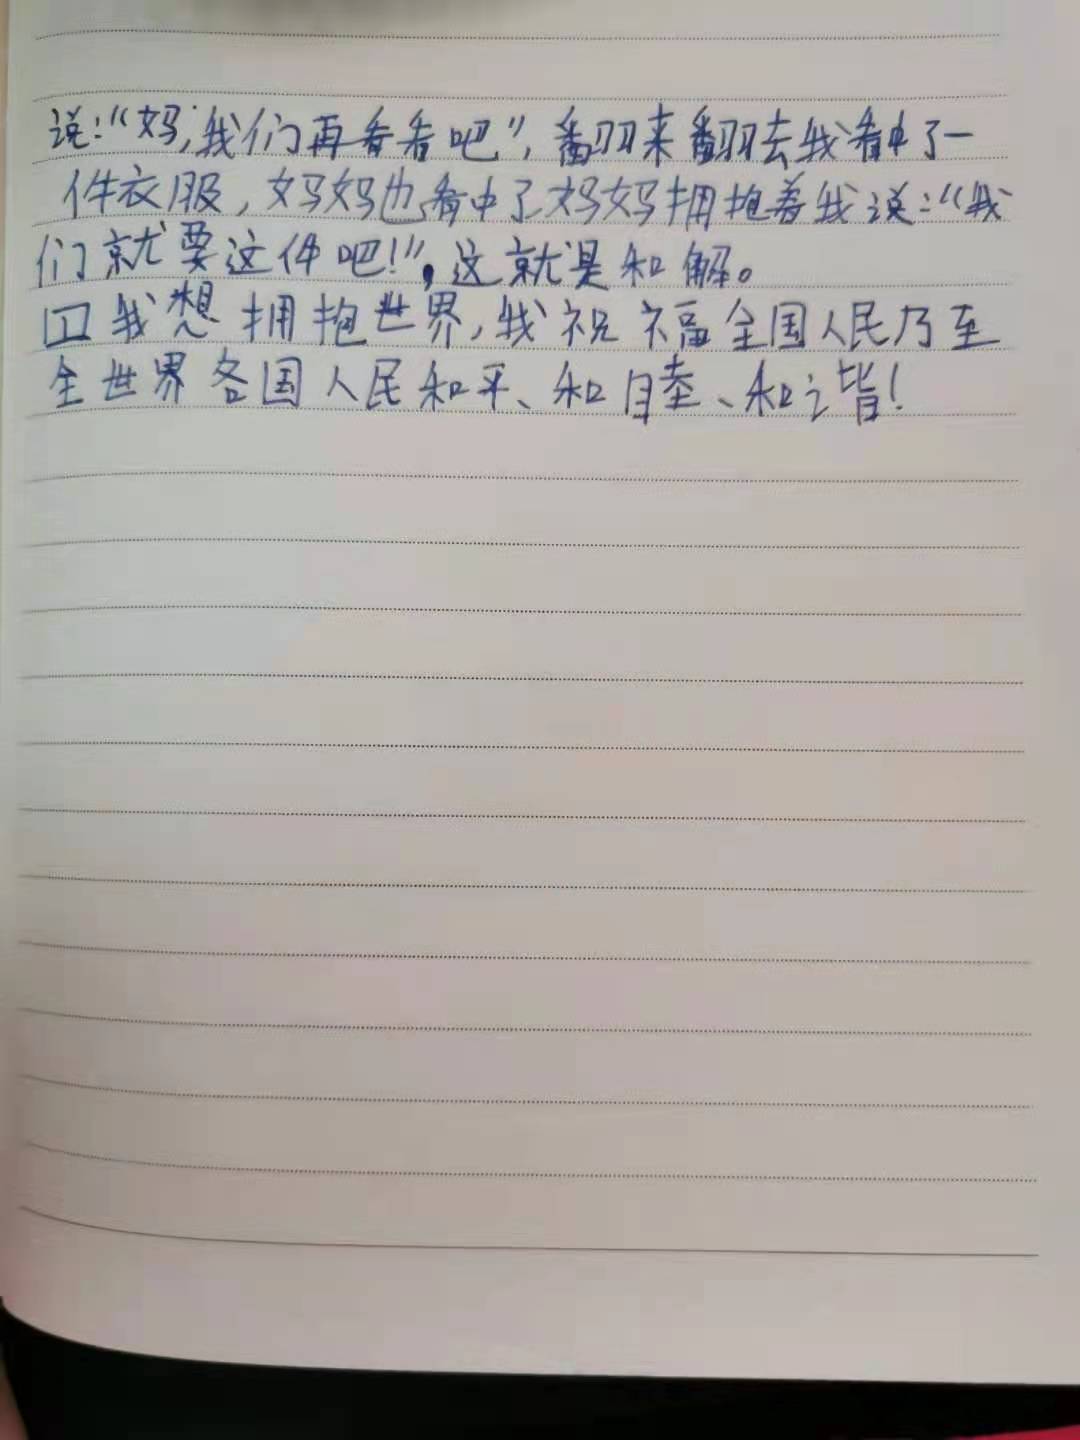 说:“妈,我们再看看吧”,翻来翻去我看中了一
件衣服,妈妈也看中了妈妈拥抱着我说:“我
们就要这件吧!”,这就是和解。
四我想拥抱世界,我祝福全国人民乃至
全世界各国人民和平、和睦、和谐!